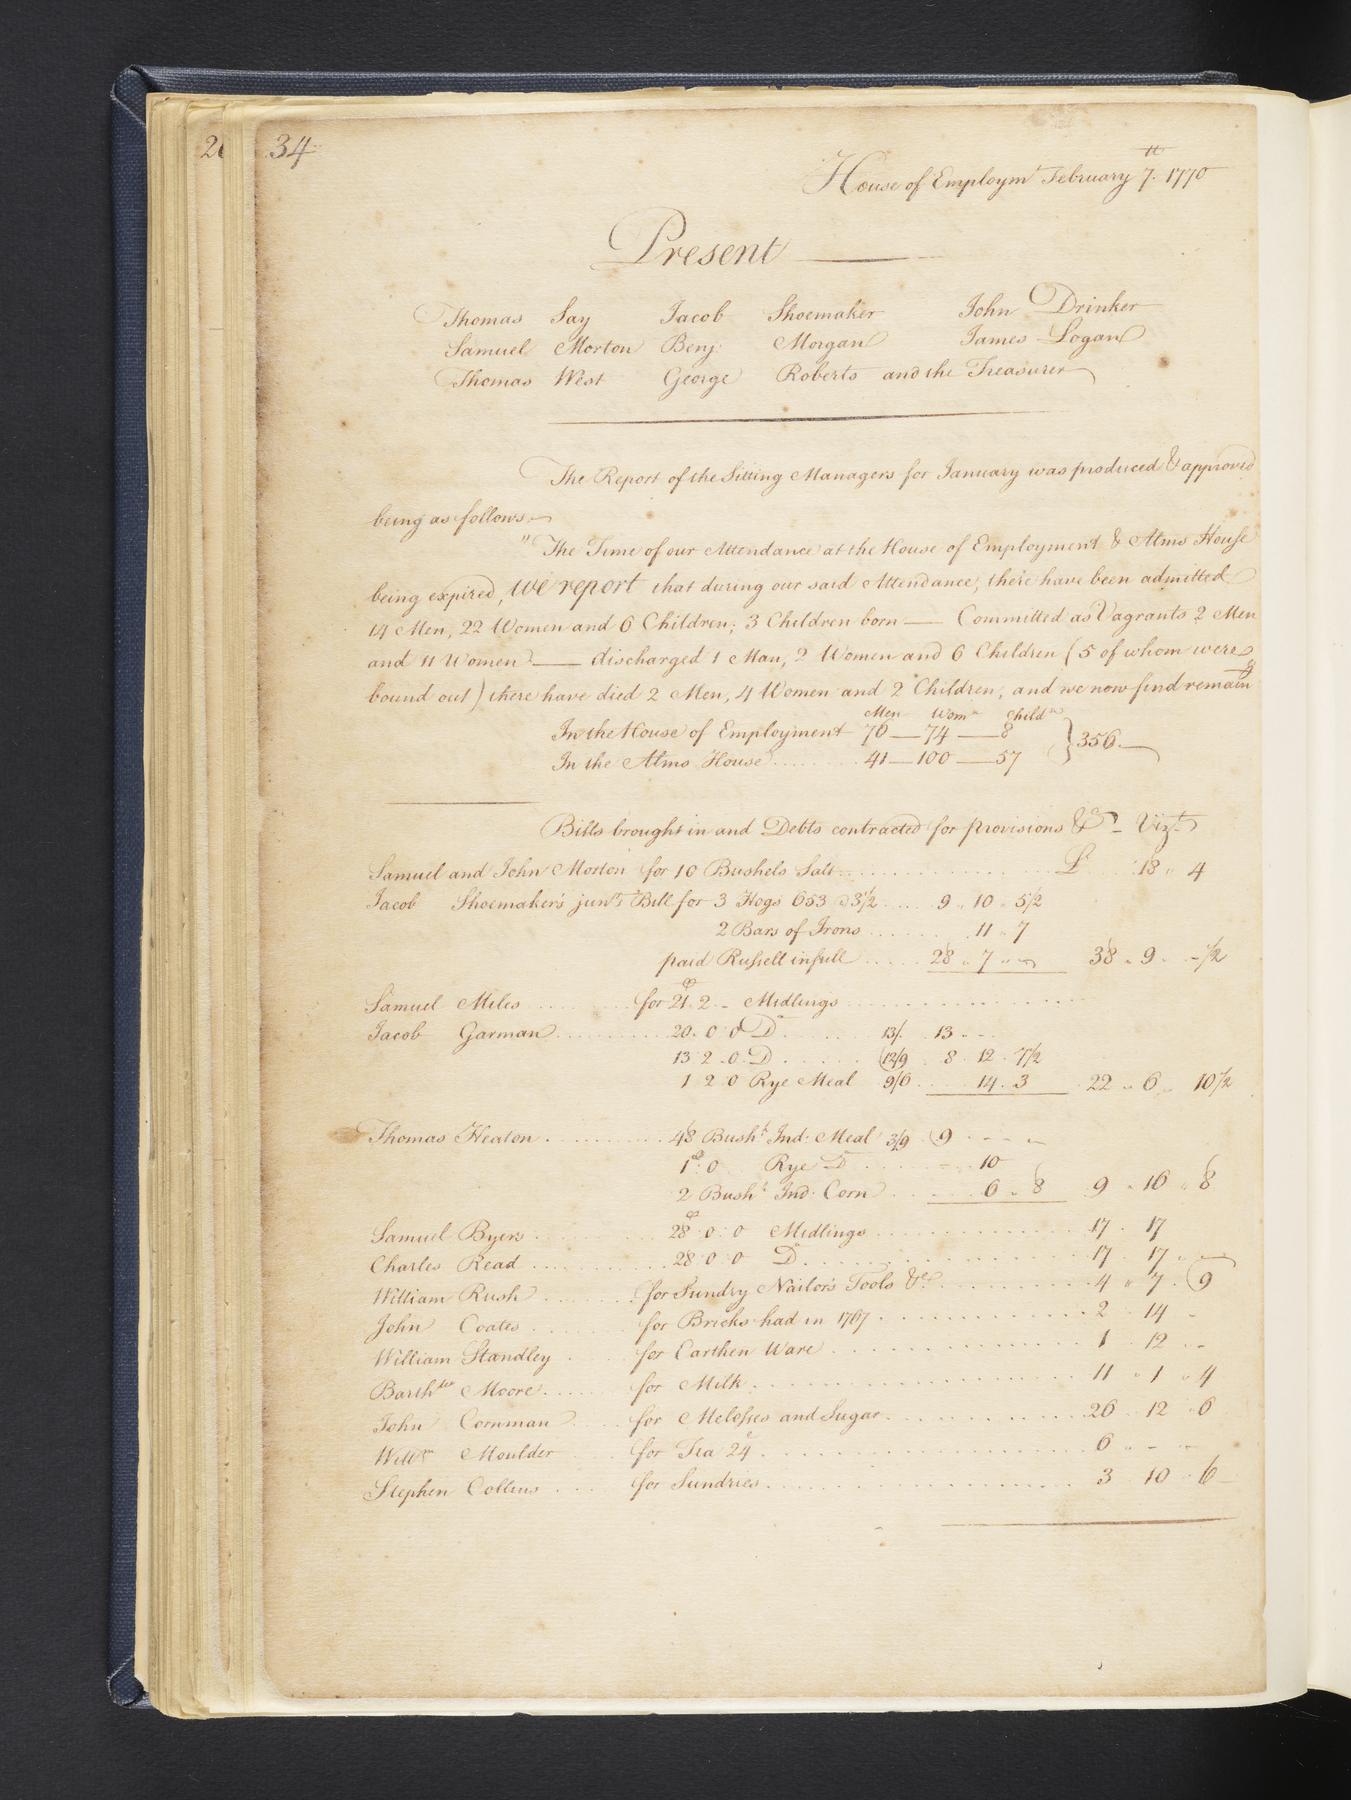 34
House of Employmt February 7th. 1770
Present
Thomas Say Jacob Shoemaker John Drinker
Samuel Morton Benj: Morgan James Logan
Thomas West George Roberts and the Treasurer
The Report of the Sitting Managers for January was produced & approved
being as follows.
"The Time of our Attendance at the House of Employment & Alms House
being expired, we report that during our said Attendance, there have been admitted
14 Men, 22 Women and 6 Children; 3 Children born — Committed as Vagrants 2 Men
and 11 Women — discharged 1 Man, 2 Women and 6 Children (5 of whom were
bound out) there have died 2 Men, 4 Women and 2 Children, and we now find remaing
Men Womn Childn
In the House of Employment 76 — 74 — 8
In the Alms House 41 — 100 — 57 } 356.
Bills brought in and Debts contracted for provisions &ca. Vizt.
Samuel and John Morton for 10 Bushels Salt £ 18 " 4
Jacob Shoemaker's junrs Bill for 3 Hogs 653 @ 3½ 9 " 10 " 5½
2 Bars of Irons 11 " 7
paid Russell in full 28 " 7 " — 38 " 9 " - ½
Samuel Miles for 21. 2 - Midlings
Jacob Garman 20. 0 0 Do 13/. 13 - -
13 2 . 0 . Do 12/9 8 . 12 . 7½
1 2 0 Rye Meal 9/6 14 . 3 22 " 6 " 10½
Thomas Heaton 48 Bushs. Ind: Meal 3/9 9 - - -
1 : 0 Rye Do 10
2 Bushs. Ind: Corn 6 " 8 9 " 16 " 8
Samuel Byers 28 : 0 : 0 Midlings 17 . 17
Charles Read 28 : 0 : 0 Do 17 17 " —
William Rush for Sundry Nailors Tools &ca 4 " 7 . 9
John Coates for Bricks had in 1767 2 . 14 -
William Standley for Earthen Ware 1 . 12 - -
Barthlw Moore for Milk 11 " 1 " 4
John Cornman for Melasses and Sugar 26 . 12 . 6
Willm Moulder for Tea 24 6 " - " -
Stephen Collins for Sundries 3 10 " 6